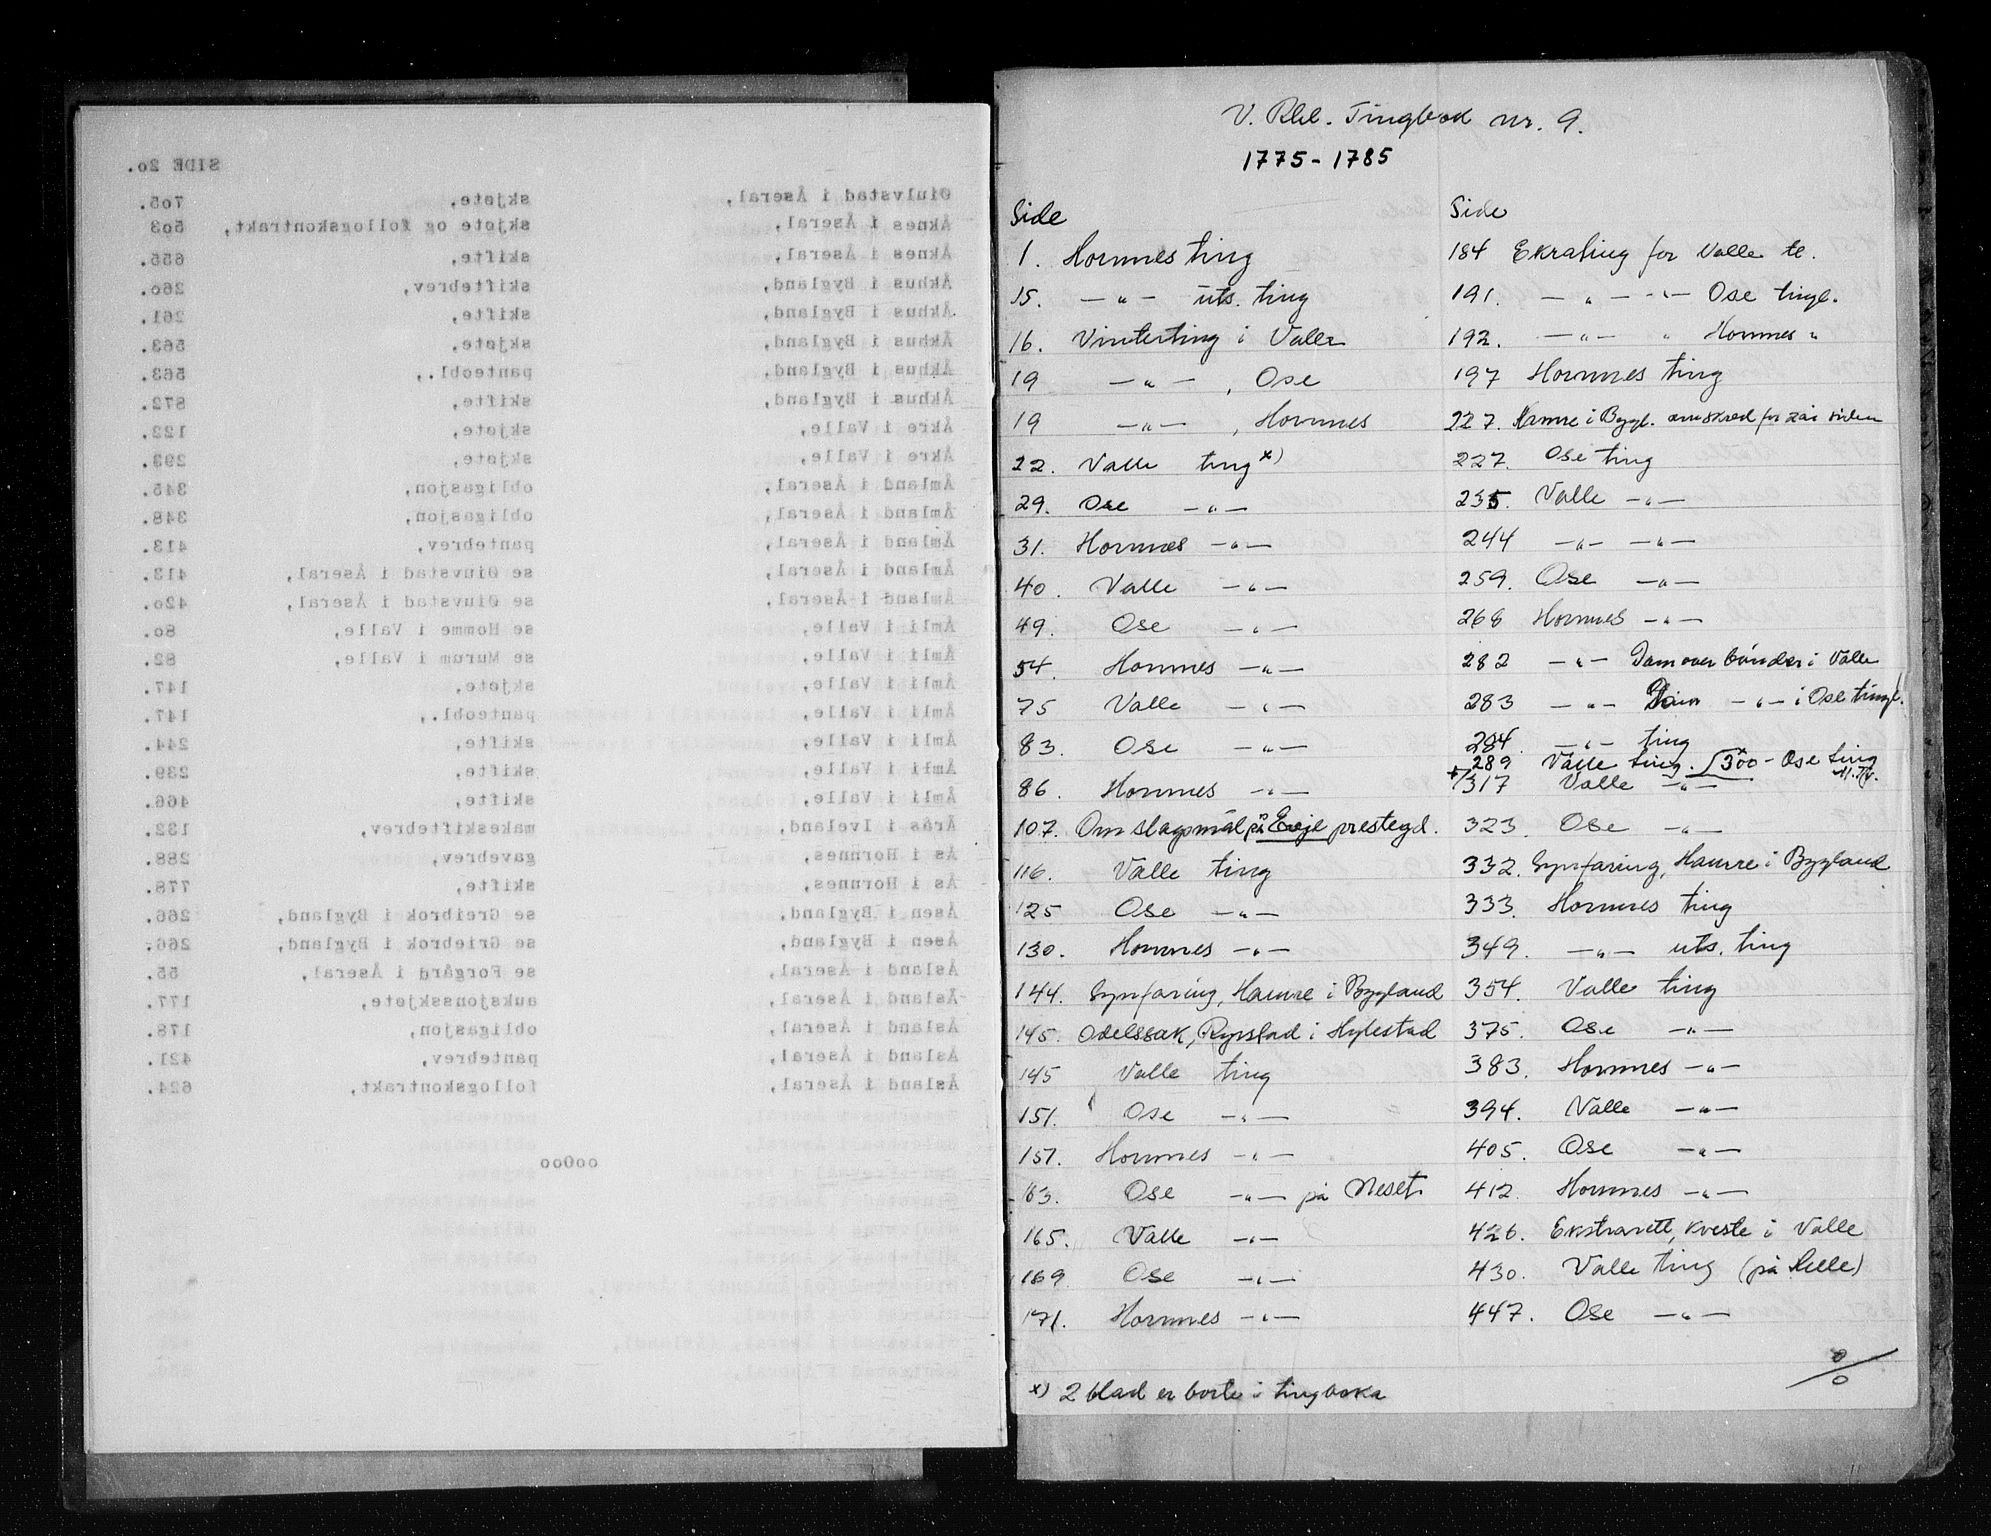 SIDE 2o.
Øiulvstad i Åseral, skjøte, 7o5.
Åknes i Åseral, skjøte og follogskontrakt, 5o3
Åknes i Åseral, skifte, 656.
Åkhus i Bygland, skiftebrev, 26o.
Åkhus i Bygland, skifte, 261.
Åkhus i Bygland, skjøte, 563.
Åkhus i Bygland, panteobl., 563.
Åkhus i Bygland, skifte, 872.
Åkre i Valle, skjøte, 122.
Åkre i Valle, skjøte, 293.
Åmland i Åseral, obligasjon, 345.
Åmland i Åseral, obligasjon, 348.
Åmland i Åseral, pantebrev, 413.
Åmland i Åseral, se Øiuvstad i Åseral, 413.
Åmland i Åseral, se Øiuvstad i Åseral, 42o.
Åmli i Valle, se Homme i Valle, 8o.
Åmli i Valle, se Murum i Valle, 82.
Åmli i Valle, skjøte, 147.
Åmli i Valle, panteobl., 147.
Åmli i Valle, skifte, 244.
Åmli i Valle, skifte, 239.
Åmli i Valle, skifte, 466.
Årås i Iveland, makeskiftebrev, 132.
Ås i Hornnes, gavebrev, 288.
Ås i Hornnes, skifte, 778.
Åsen i Bygland, se Greibrok i Bygland, 266.
Åsen i Bygland, se Griebrok i Bygland, 266.
Åsland i Åseral, se Forgård i Åseral, 55.
Åsland i Åseral, auksjonsskjøte, 177.
Åsland i Åseral, obligasjon, 178.
Åsland i Åseral, pantebrev, 421.
Åsland i Åseral, follogskontrakt, 624.
ooOoo
V. Rbl. Tingbok nr. 9.
1775-1785
Side
1. Hornnes ting
15. — " — uts. ting
16. Vinterting i Valle
19 — " — , Ose
19 — " — , Hornnes
22. Valle ting x)
29. Ose — " —
31. Hornnes — " —
40. Valle — " —
49. Ose — " —
54. Hornnes — " —
75 Valle — " —
83. Ose — " —
86. Hornnes — " —
107. Om slagsmål på Evje prestegd.
116. Valle ting
125 Ose — " —
130. Hornnes — " —
144. Synfaring, Hamre i Bygland
145. Odelssak, Rysstad i Hylestad
145 Valle ting
151. Ose — " —
157. Hornnes — " —
163. Ose — " — på Neset
165. Valle — " —
169 Ose — " —
171. Hornnes — " —
x) 2 blad er borte i tingboka
Side
184 Ekrating for Valle tl.
191. — " — " — Ose tingl.
192. — " — " Hornnes "
197 Hornnes ting
227. Hamre i Bygl. omskred for 2 år siden
227. Ose ting
235. Valle — " —
244 — " — — " —
259. Ose — " —
268 Hornnes — " —
282 — " — Dom over bønder i Valle
283 — " — Dom — " — i Ose tingl.
284. — " — ting
289 Valle ting. 300 - Ose ting
317 Valle — " —
323. Ose — " —
332. Synfaring, Hamre i Bygland
333. Hornnes ting
349. — " — uts. ting
354. Valle ting
375. Ose — " —
383. Hornnes — " —
394. Valle — " —
405. Ose — " —
412. Hornnes — " —
426. Ekstrarett, Kveste i Valle
430. Valle ting (på Helle)
447. Ose — " —